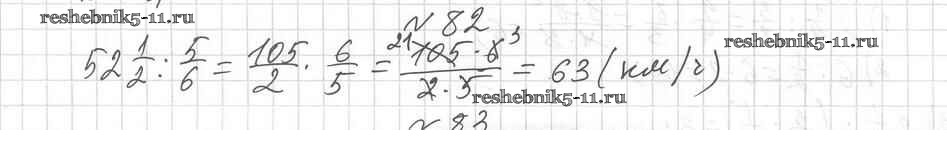 reshebnik5-11.ru
№ 82
52 1/2 : 5/6 = 105/2 · 6/5 = 21 105 · 6 3 / 2 · 5 = 63 (км/ч)
reshebnik5-11.ru
reshebnik5-11.ru
№ 83